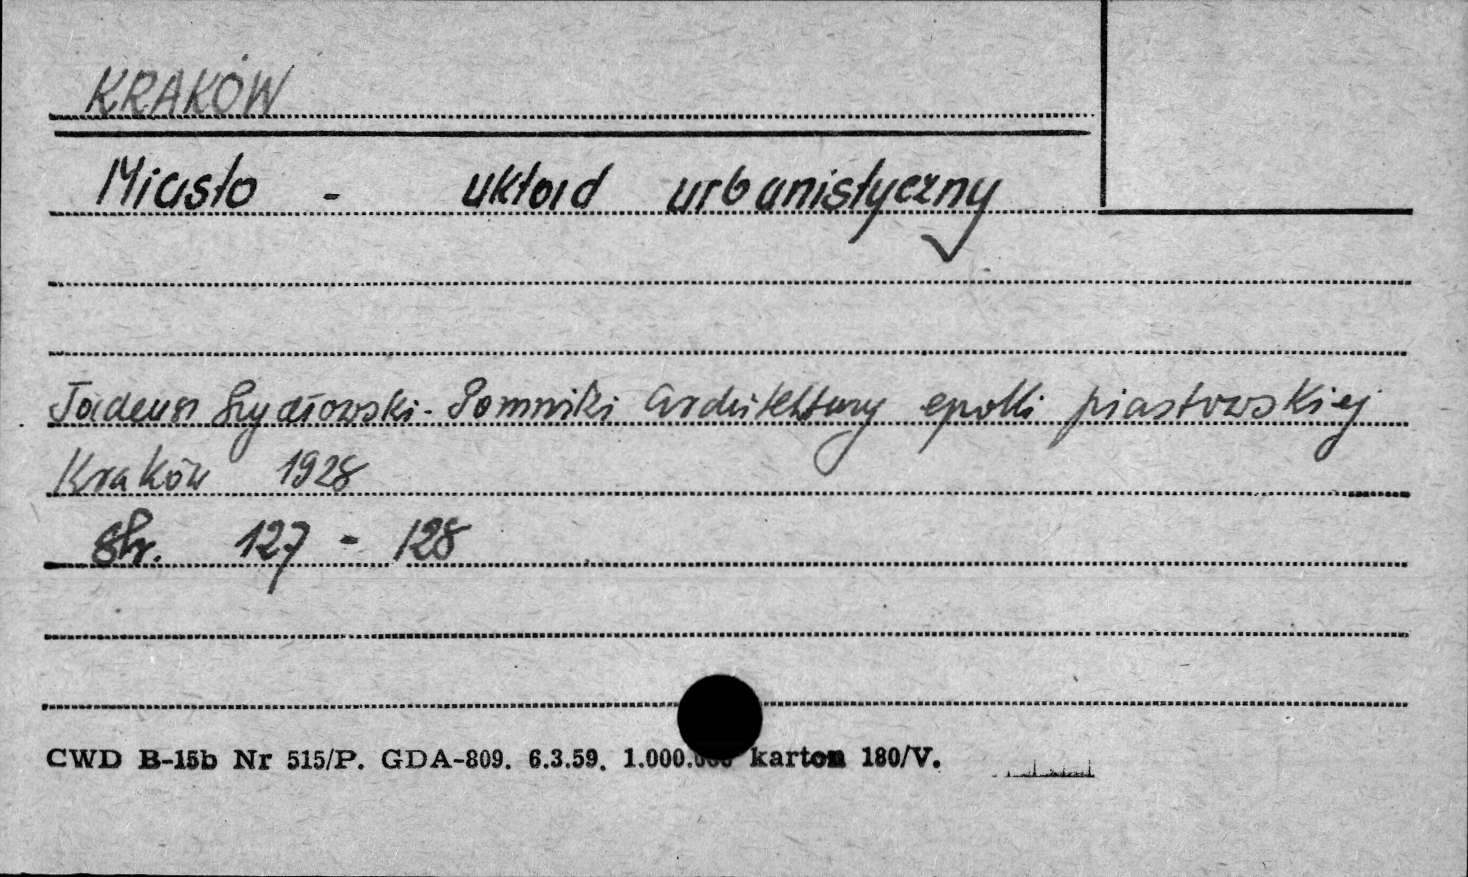 KRAKÓW
Miasto - układ urbanistyczny
Tadeusz Szydłowski - Pomniki architektury epoki piastowskiej
Kraków 1928
str. 127 - 128
CWD B-15b Nr 515/P. GDA-809. 6.3.59. 1.000.000 karton 180/V.